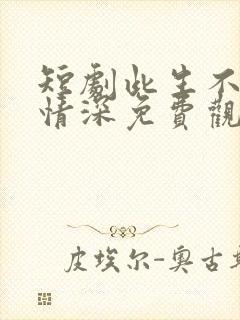 短劇此生不
情深免費觀
皮埃尔-奥古